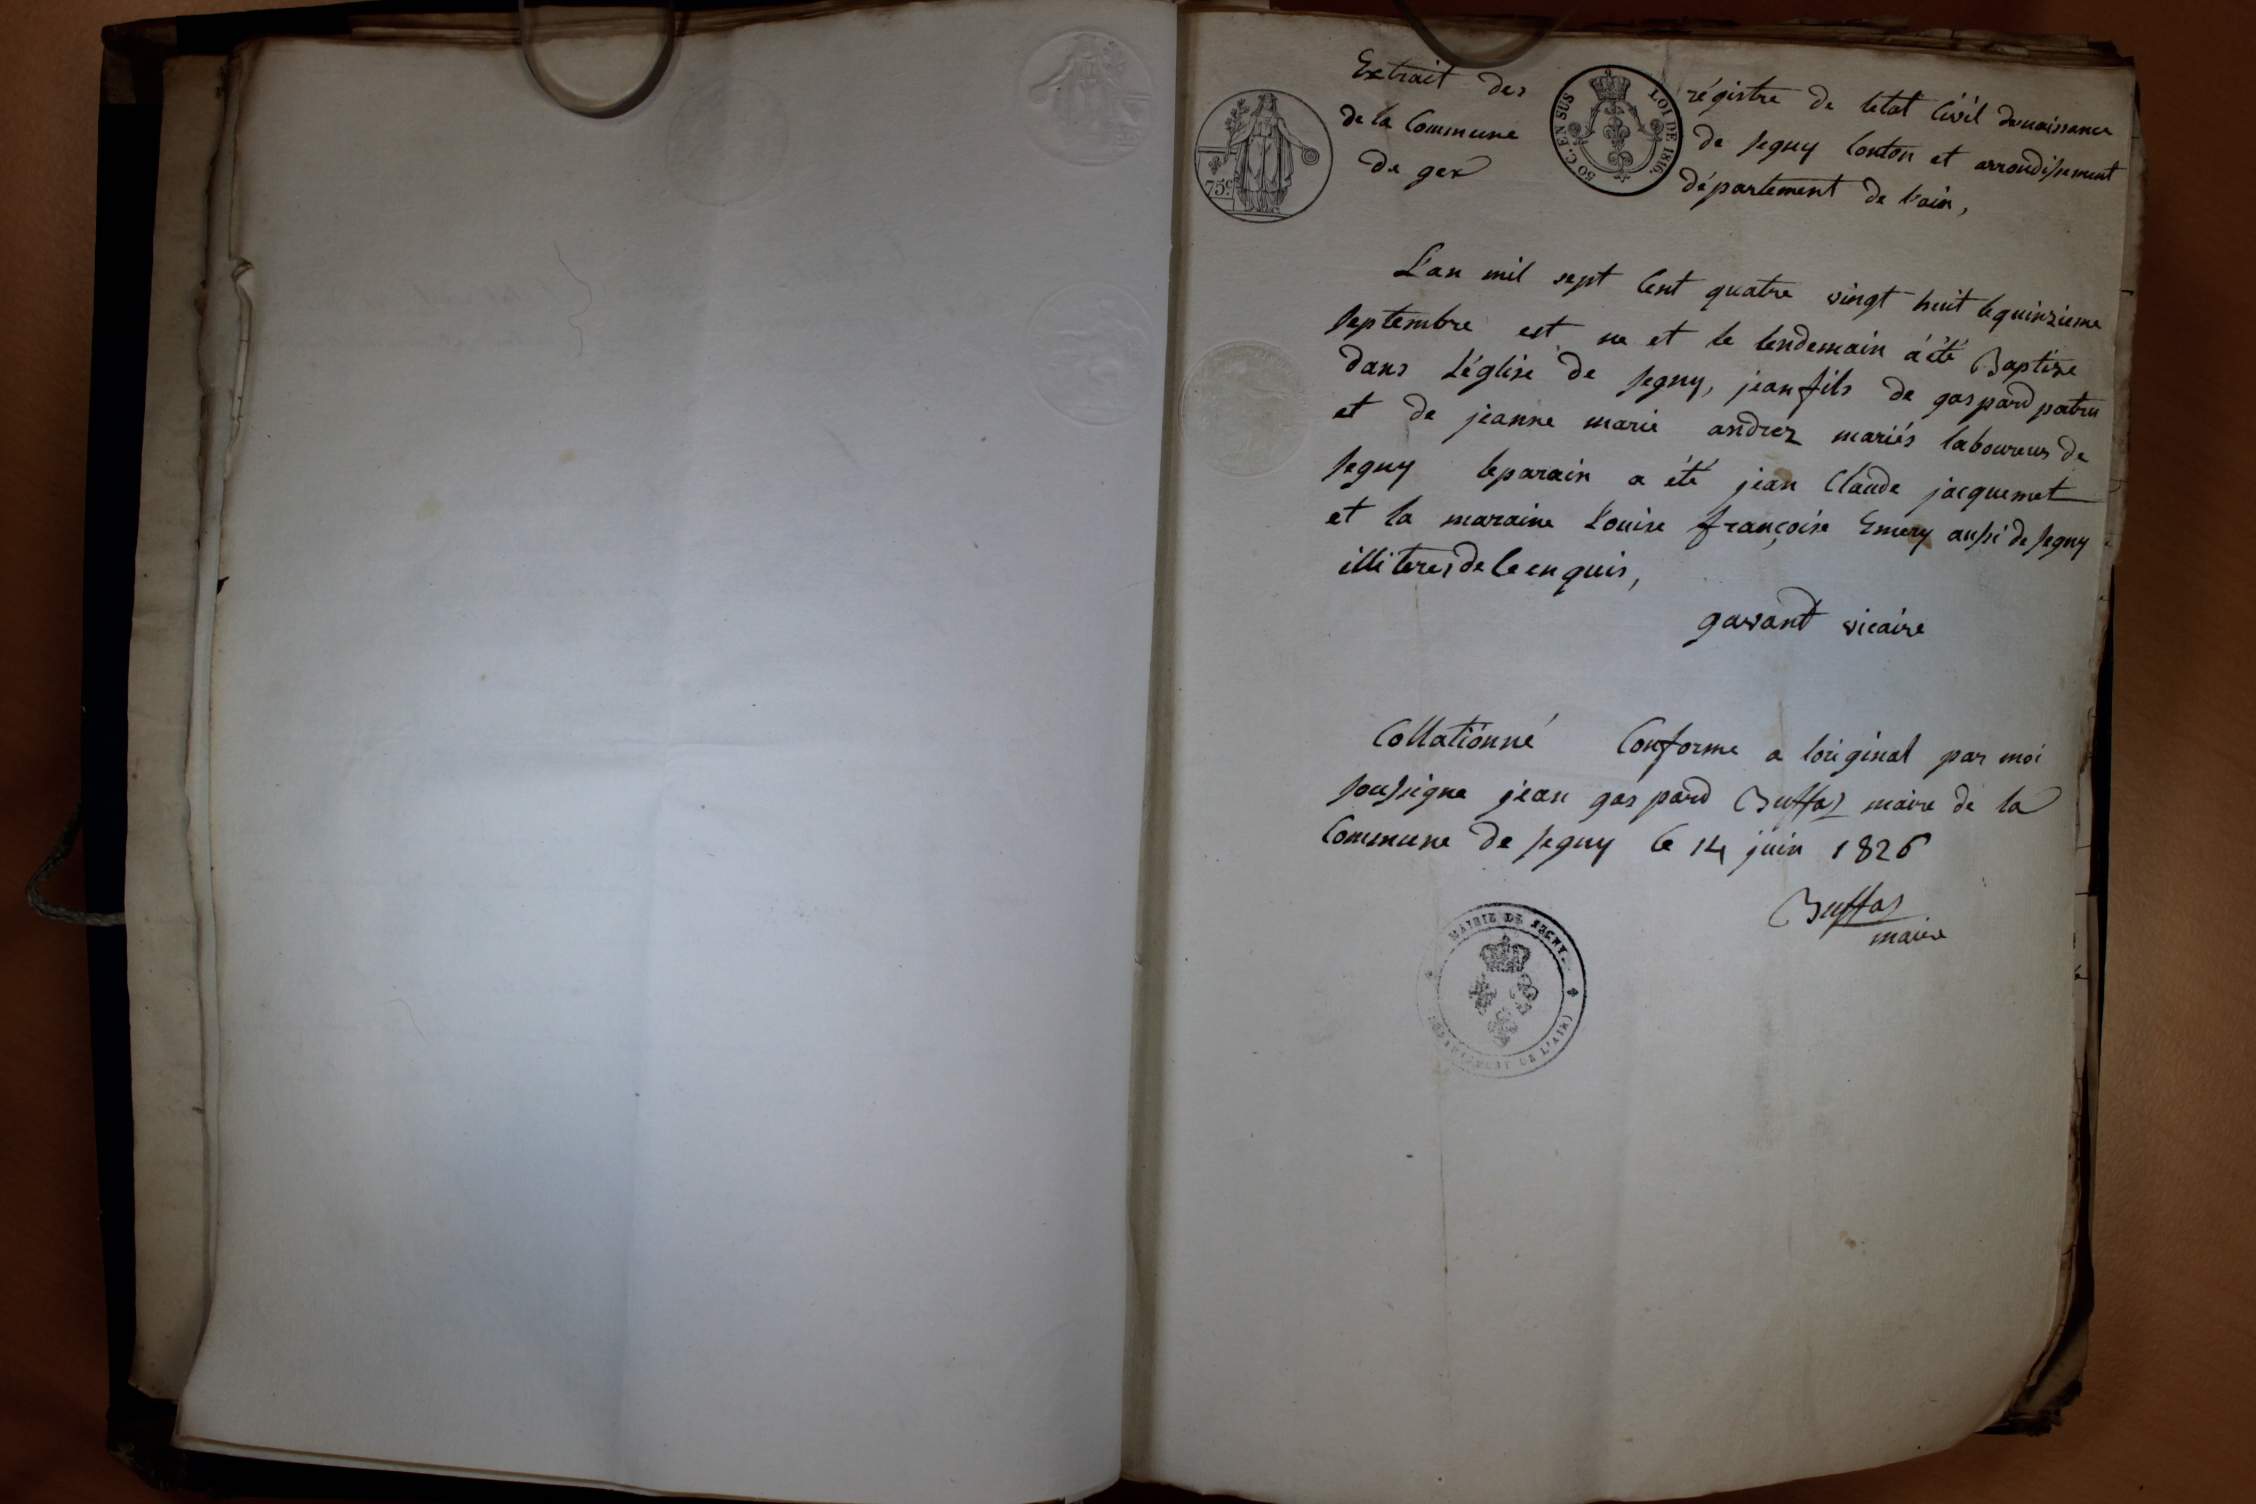 Extrait des régistre de letat Civil de naissance
de la Commune de Segny Conton et arrondissement
de gex département de l'ain,
75c.
50 C. EN SUS LOI DE 1816.
L'an mil sept Cent quatre vingt huit le quinzieme
Septembre est ne et le lendemain a été Baptize
dans L'église de Segny, jean fils de gaspard patru
et de jeanne marie andrez mariés laboureurs de
Segny le parain a été jean Claude jacquemet
et la maraine Louise françoise Emery aussi de Segny
illiteres de Ce enquis,
gavant vicaire
Collationné Conforme a loriginal par moi
soussigne jean gaspard Buffaz maire de la
Commune de Segny le 14 juin 1826
Buffaz
maire
MAIRIE DE SEGNY
DÉPARTEMENT DE L'AIN)